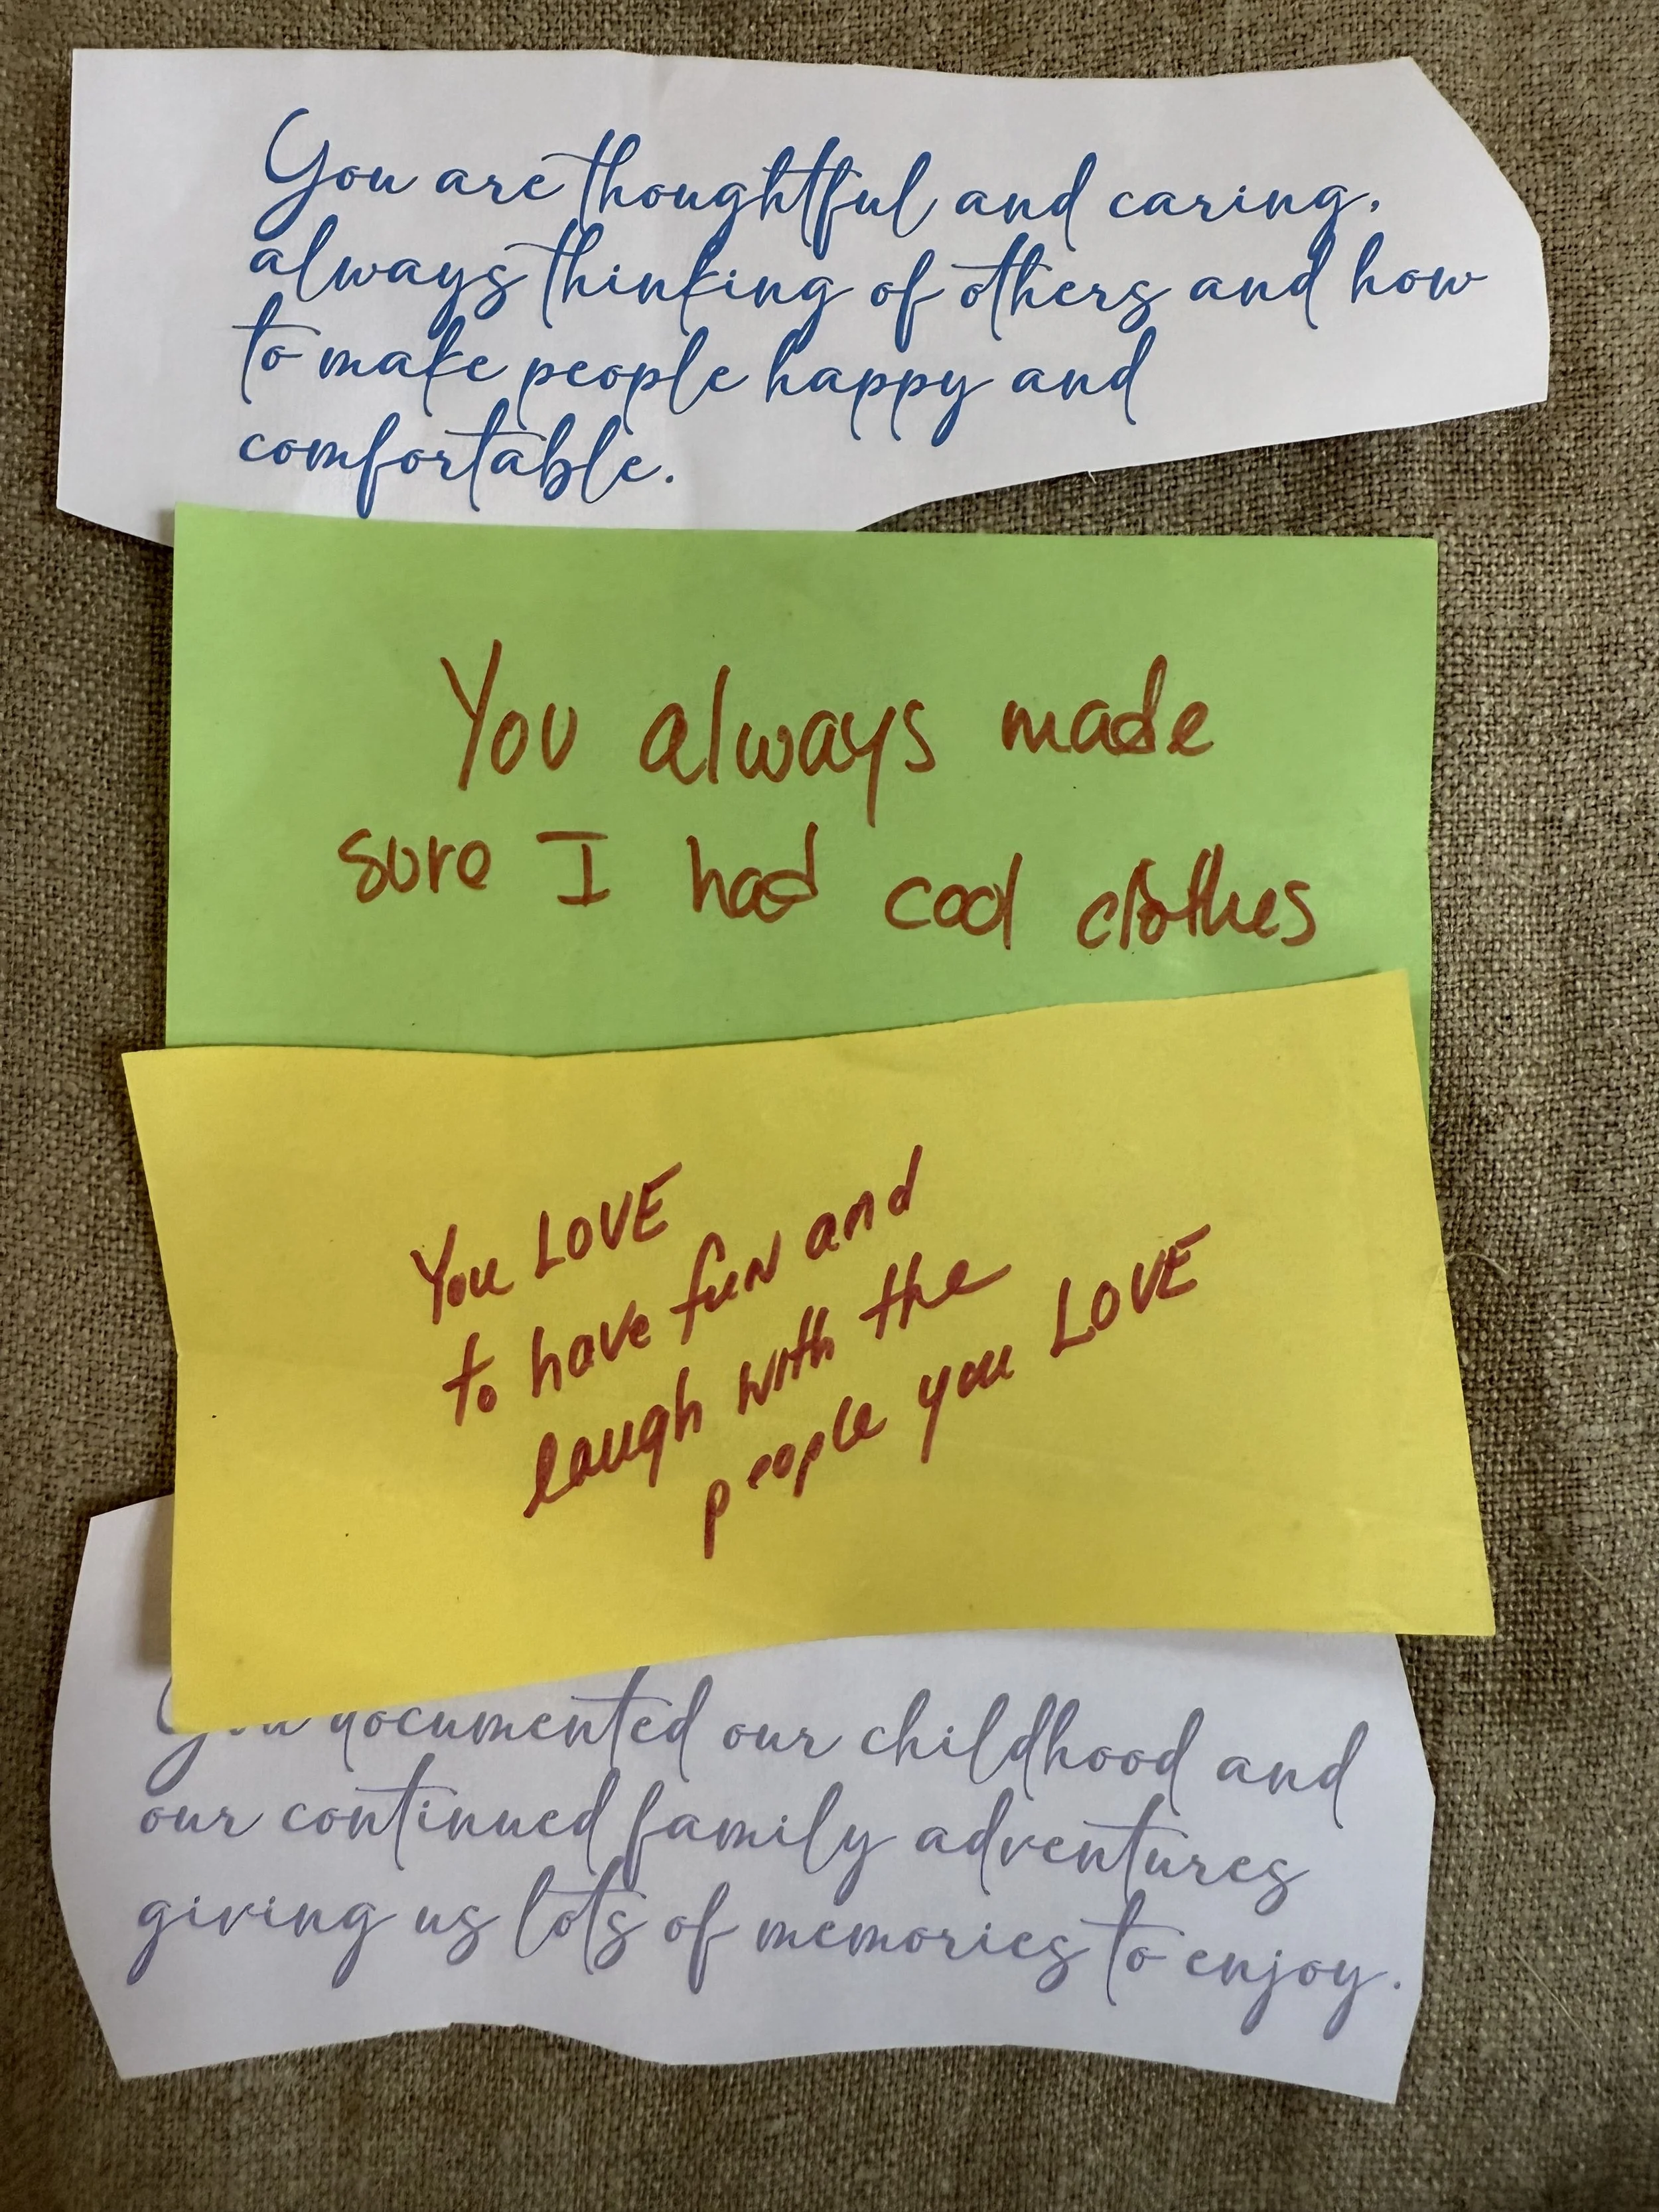 You are thoughtful and caring,
always thinking of others and how
to make people happy and
comfortable.
You always made
sure I had cool clothes
You LOVE
to have fun and
laugh with the
people you LOVE
You documented our childhood and
our continued family adventures
giving us lots of memories to enjoy.